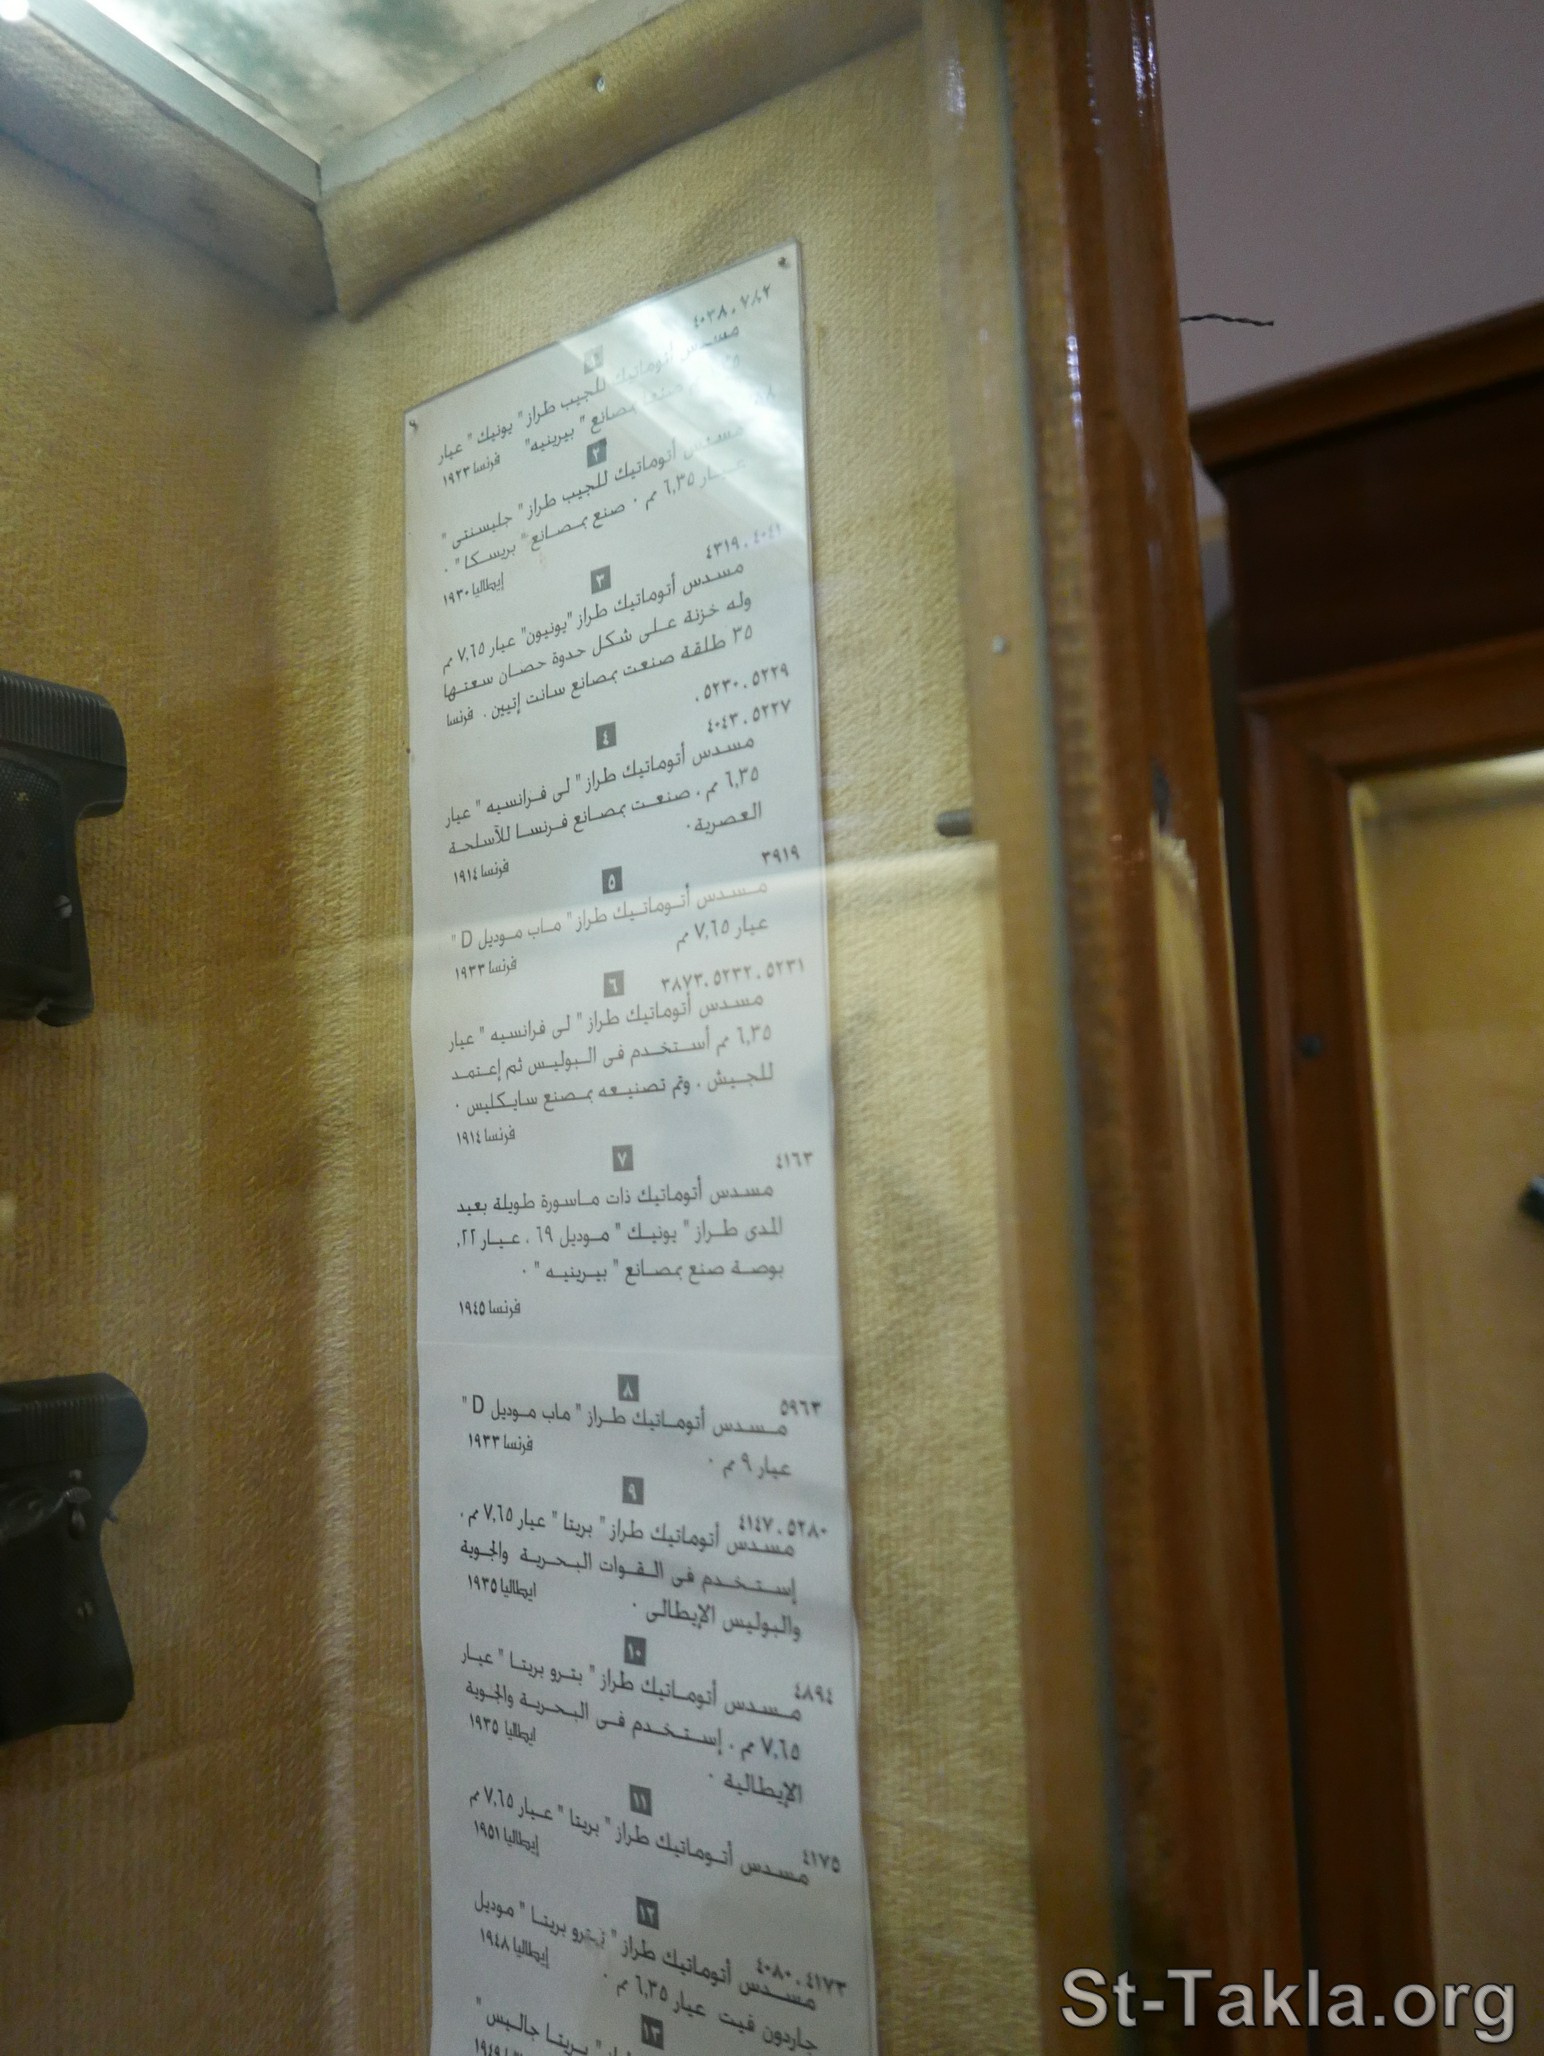 ٤٠٣٨
١
مسدس أتوماتيك للجيب طراز " يونيك " عيار
بمصانع " بيرينيه"
فرنسا ١٩٢٣
٢
مسدس أتوماتيك للجيب طراز " جليسنتى "
عيار ٦,٣٥ مم ٠ صنع بمصانع " بريسكا " .
إيطاليا ١٩٣٠
٤٠٤١ ، ٤٣١٩
٣
مسدس أتوماتيك طراز "يونيون" عيار ٧,٦٥ مم
وله خزنة على شكل حدوة حصان سعتها
٣٥ طلقة صنعت بمصانع سانت إتيين . فرنسا
٥٢٢٩ ، ٥٢٣٠ ،
٥٢٢٧ ، ٤٠٤٣
٤
مسدس أتوماتيك طراز " لى فرانسيه " عيار
٦,٣٥ مم . صنعت بمصانع فرنسا للأسلحة
العصرية ٠
فرنسا ١٩١٤
٣٩١٩
٥
مسدس أتوماتيك طراز " ماب موديل D "
عيار ٧,٦٥ مم
فرنسا ١٩٣٣
٥٢٣١ ، ٥٢٣٢ ، ٣٨٧٣
٦
مسدس أتوماتيك طراز " لى فرانسيه " عيار
٦,٣٥ مم أستخدم فى البوليس ثم إعتمد
للجيش . وتم تصنيعه بمصنع سايكليس ٠
فرنسا ١٩١٤
٤١٦٣
٧
مسدس أتوماتيك ذات ماسورة طويلة بعيد
المدى طراز " يونيك " موديل ٦٩ . عيار ٢٢,
بوصة صنع بمصانع " بيرينيه " ٠
فرنسا ١٩٤٥
٥٩٦٣
٨
مسدس أتوماتيك طراز " ماب موديل D "
عيار ٩ مم ٠
فرنسا ١٩٣٣
٩
٥٢٨٠ ، ٤١٤٧
مسدس أتوماتيك طراز " بريتا " عيار ٧,٦٥ مم .
إستخدم فى القوات البحرية والجوية
والبوليس الإيطالى ٠
ايطاليا ١٩٣٥
١٠
٤٨٩٤
مسدس أتوماتيك طراز " بترو بريتا " عيار
٧,٦٥ مم . إستخدم فى البحرية والجوية
الإيطالية ٠
ايطاليا ١٩٣٥
١١
٤١٧٥
مسدس أتوماتيك طراز " بريتا " عيار ٧,٦٥ مم
إيطاليا ١٩٥١
١٢
٤١٧٣ ، ٤٠٨٠
مسدس أتوماتيك طراز " بترو بريتا " موديل
جاردون فيت عيار ٦,٣٥ مم ٠
إيطاليا ١٩٤٨
١٣
" بريتا جاليس "
١٩٤٩
St-Takla.org